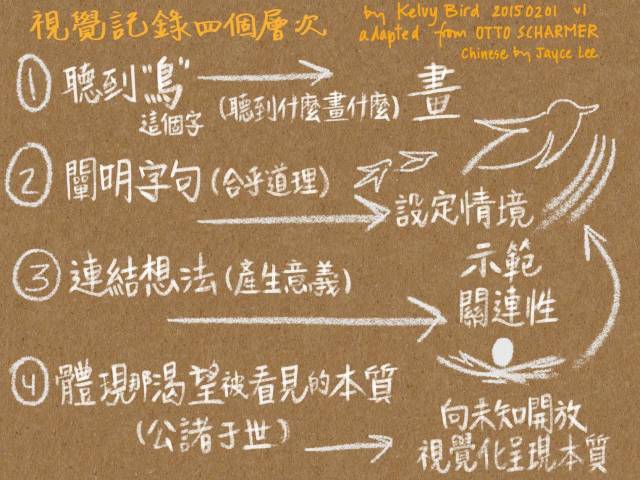 視覺記錄四個層次
by Kelvy Bird 20150201 v1
adapted from OTTO SCHARMER
Chinese by Jayce Lee
① 聽到"鳥" 畫
這個字 (聽到什麼畫什麼)
② 闡明字句 (合乎道理)
設定情境
③ 連結想法 (產生意義)
示範
關連性
④ 體現那渴望被看見的本質
(公諸于世)
向未知開放
視覺化呈現本質